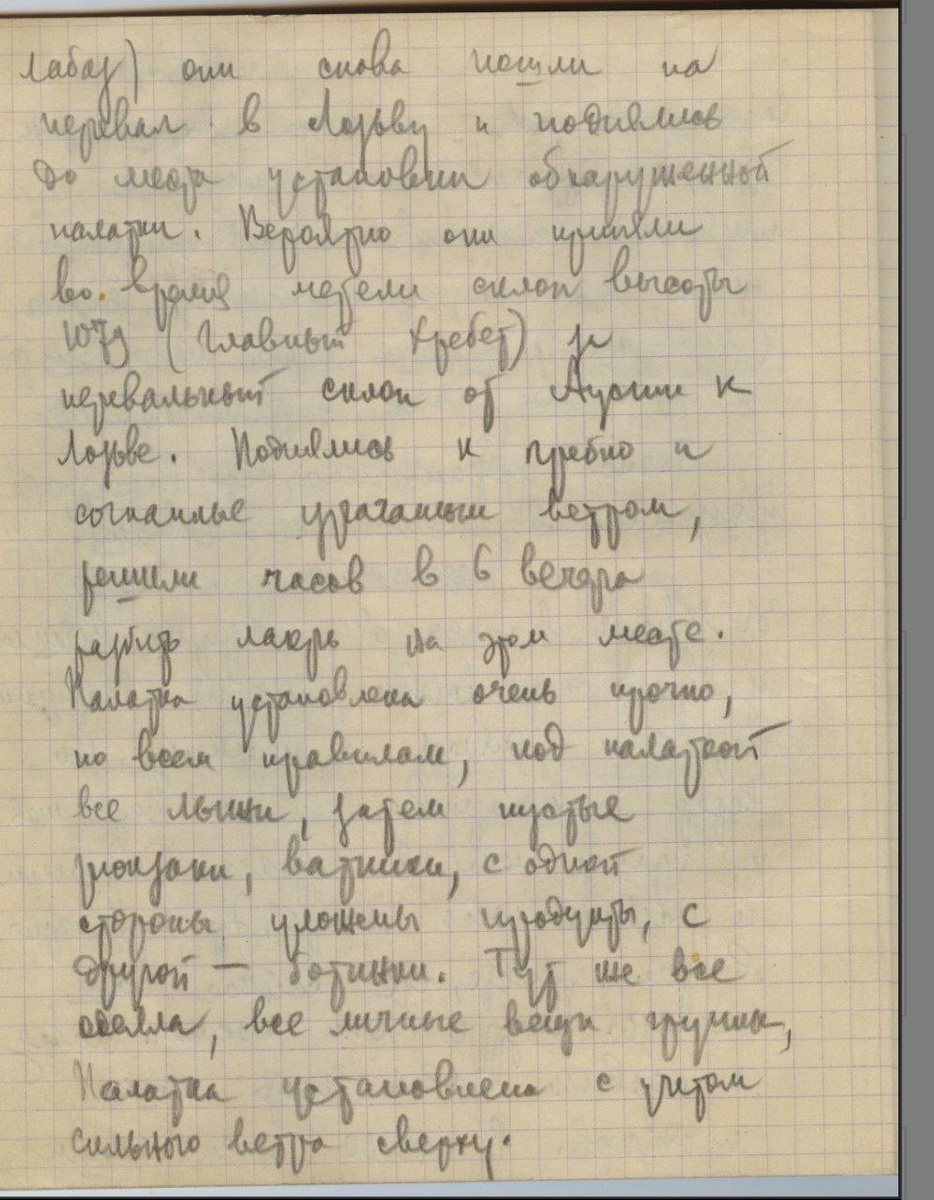 лабаз) они снова пошли на
перевал в Лозьву и поднялись
до места установки обнаруженной
палатки. Вероятно они приняли
во время метели склон высоты
1079 (Главный хребет) за
перевальный склон от Ауспии к
Лозьве. Поднялись к гребню и
согнанные ураганным ветром,
решили часов в 6 вечера
разбить лагерь на этом месте.
Палатка установлена очень прочно,
по всем правилам, под палаткой
все лыжи, затем пустые
рюкзаки, ватники, с одной
стороны уложены продукты, с
другой — ботинки. Тут же все
одеяла, все личные вещи группы,
Палатка установлена с учетом
сильного ветра сверху.